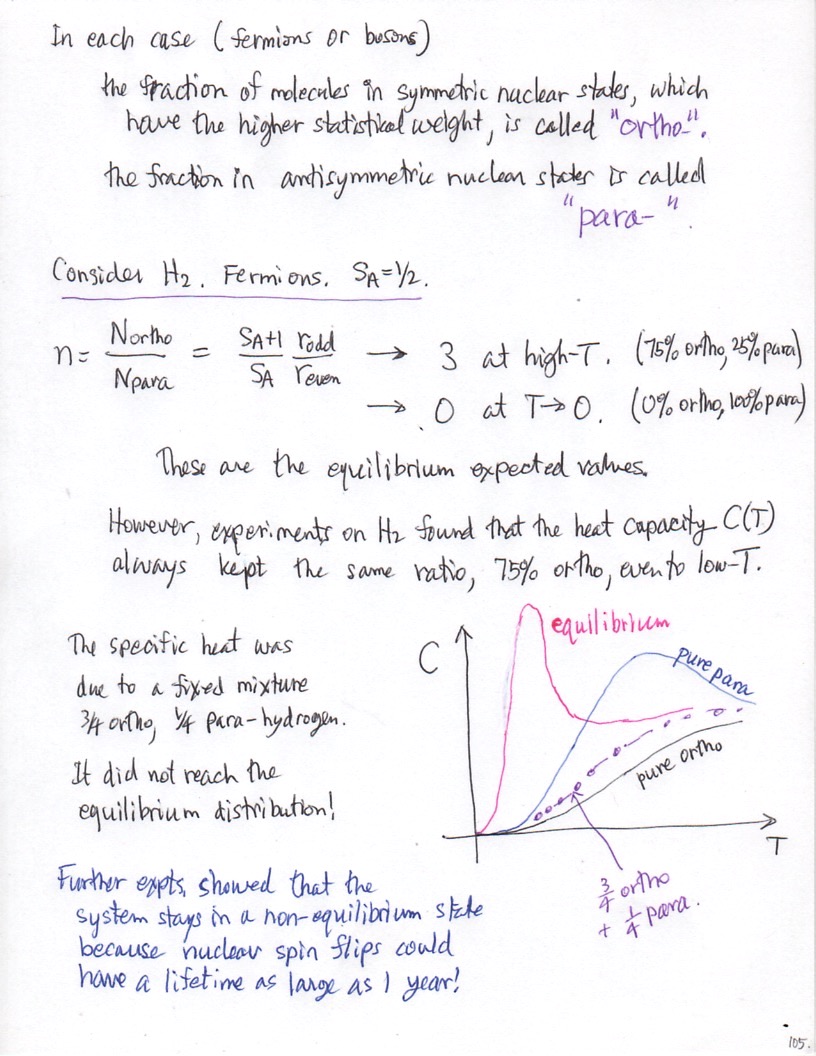 In each case (fermions or bosons)
the fraction of molecules in symmetric nuclear states, which
have the higher statistical weight, is called "ortho-".
the fraction in antisymmetric nuclear states is called
"para-".
Consider H₂. Fermions. S_A=1/2.
n = N_ortho/N_para = (S_A+1)/S_A r_odd/r_even → 3 at high-T. (75% ortho, 25% para)
→ 0 at T→0. (0% ortho, 100% para)
These are the equilibrium expected values.
However, experiments on H₂ found that the heat capacity C(T)
always kept the same ratio, 75% ortho, even to low-T.
The specific heat was
due to a fixed mixture
3/4 ortho, 1/4 para-hydrogen.
It did not reach the
equilibrium distribution!
C
equilibrium
pure para
pure ortho
T
3/4 ortho
+ 1/4 para.
Further expts. showed that the
system stays in a non-equilibrium state
because nuclear spin flips could
have a lifetime as large as 1 year!
105.